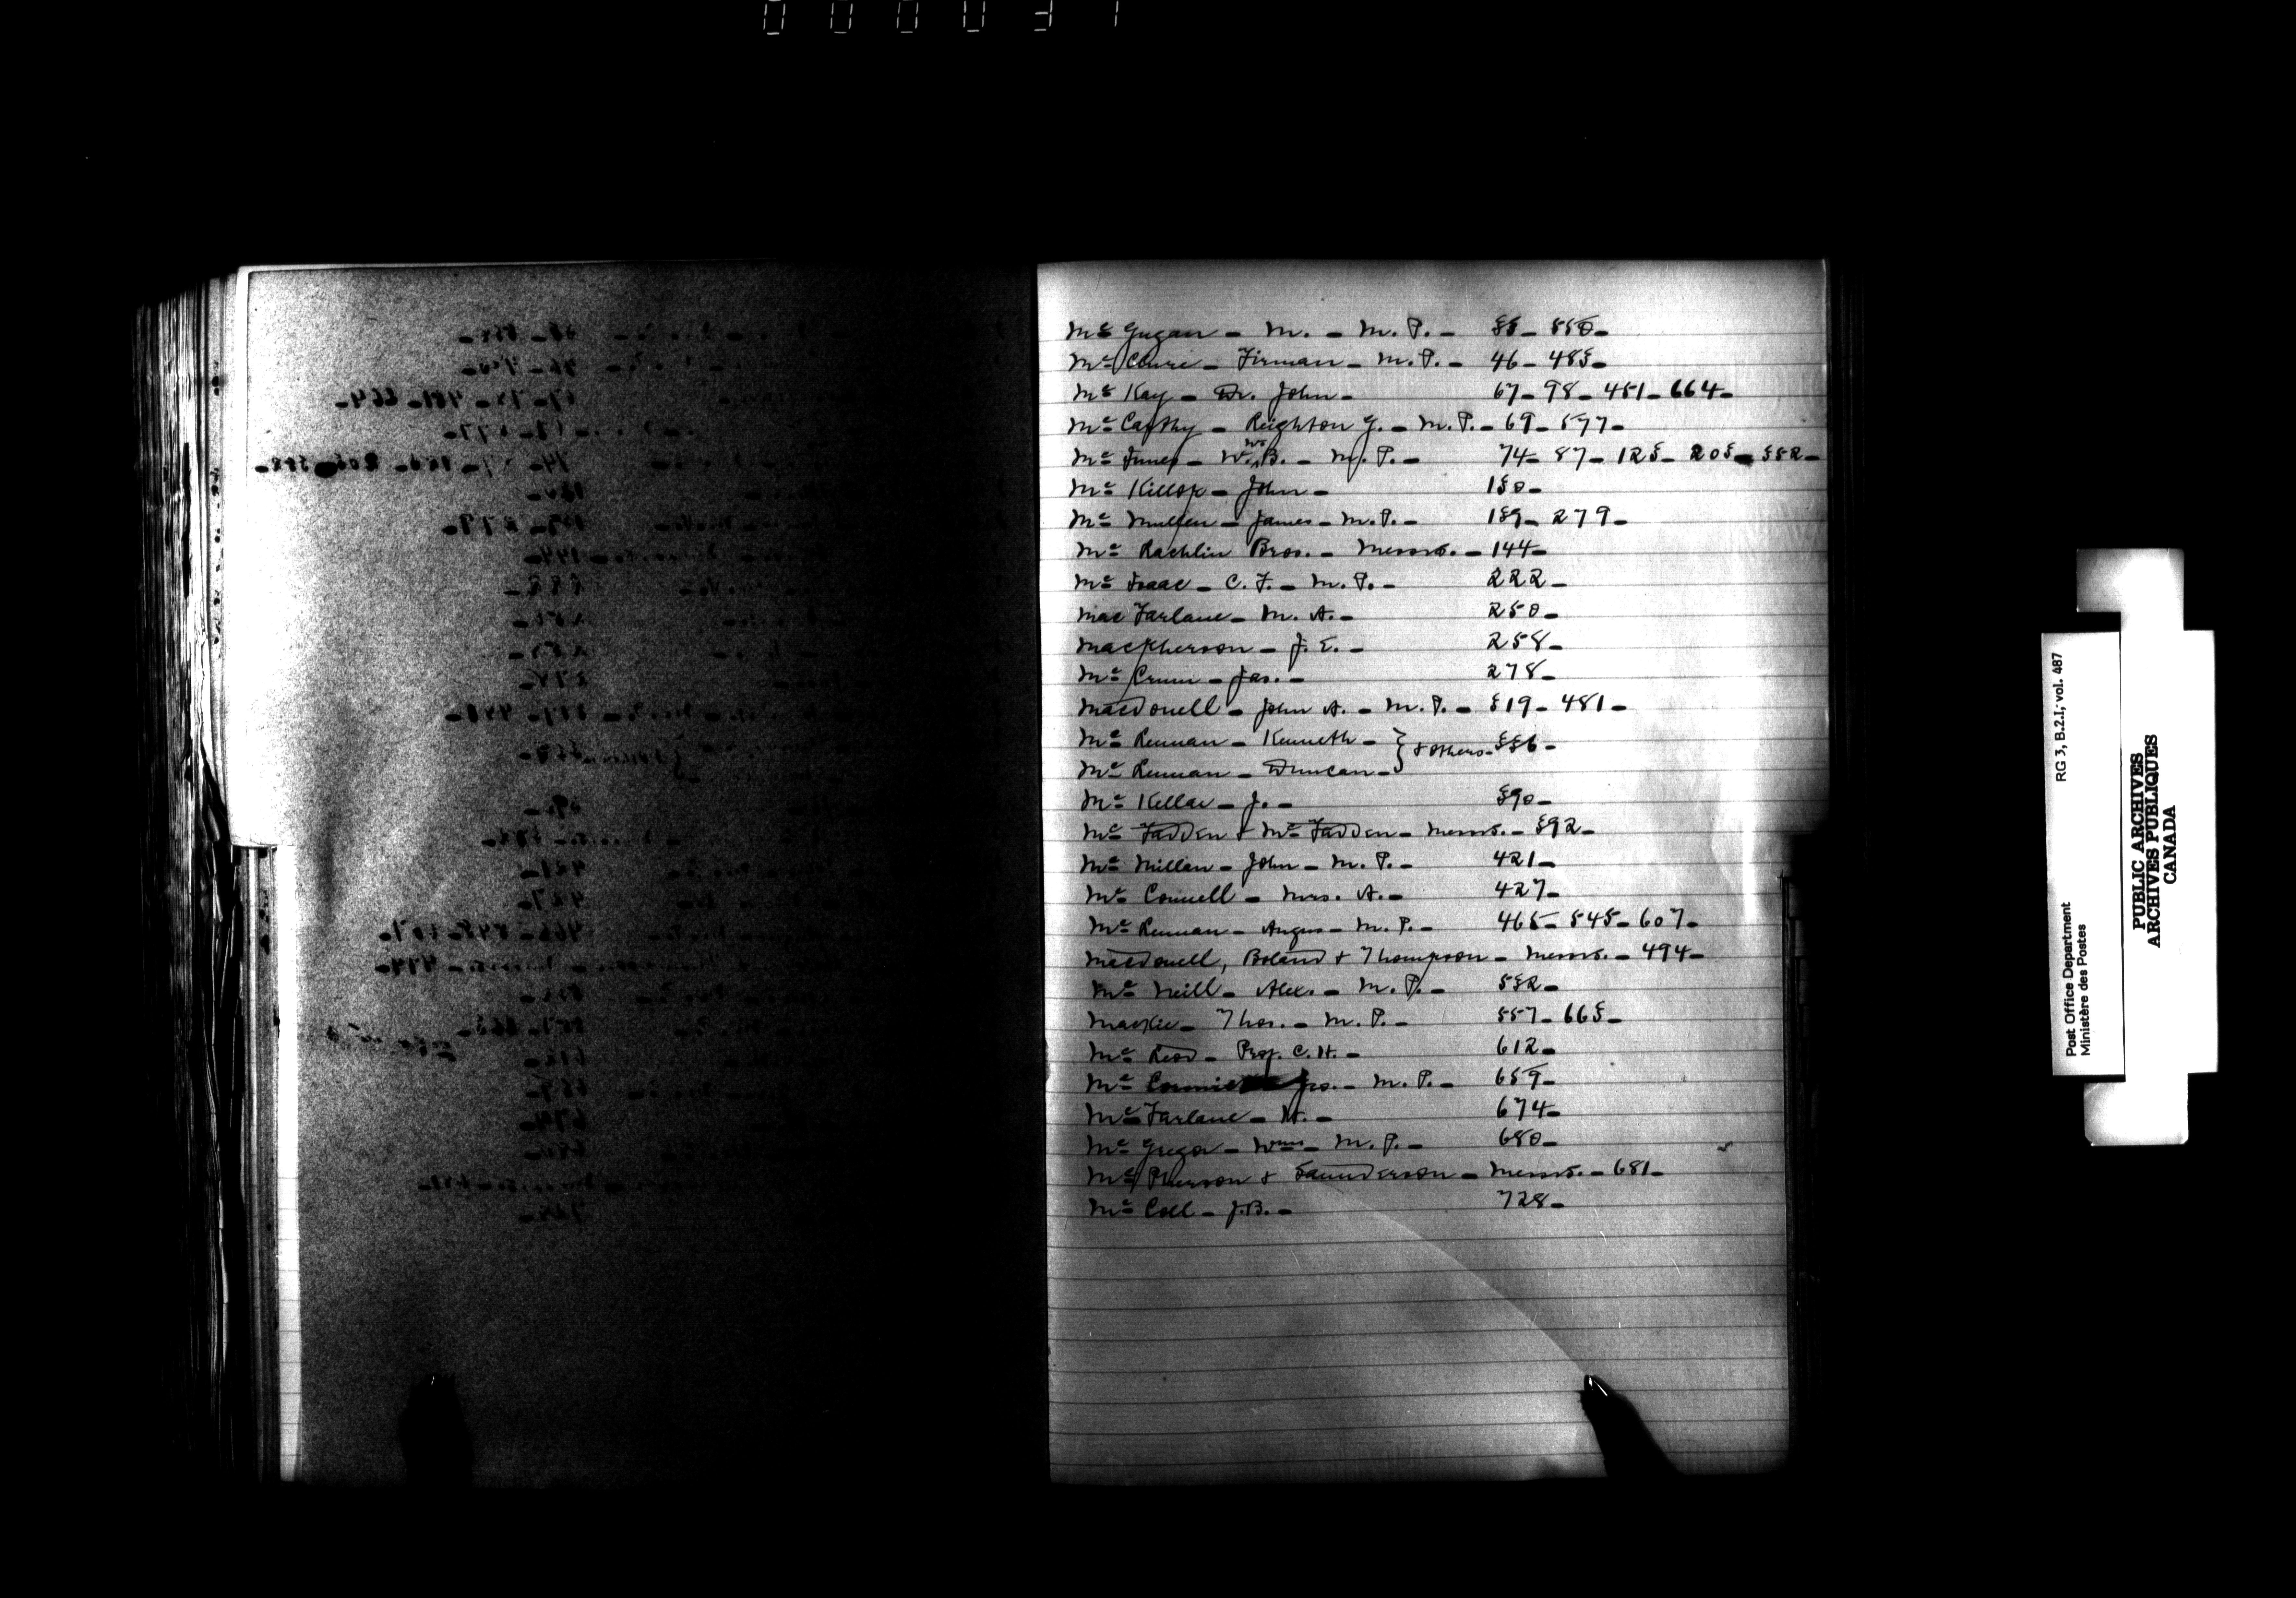 000031
Mc Gugan - M. - M.P. - 35 - 550 -
Mc Clure - Firman - M.P. - 46 - 483 -
Mc Kay - Dr. John - 67 - 98 - 451 - 664 -
Mc Carthy - Leighton G. - M.P. - 69 - 577 -
Mc Innes - W. W. B. - M.P. - 74 - 87 - 123 - 203 - 352 -
Mc Killop - John - 130 -
Mc Mullen - James - M.P. - 139 - 279 -
Mc Lachlin Bros. - Messrs. - 144 -
Mc Isaac - C. F. - M.P. - 222 -
Mac Farlane - M. A. - 250 -
Macpherson - J. E. - 258 -
Mc Crum - Jas. - 278 -
Macdonell - John A. - M.P. - 319 - 481 -
Mc Lennan - Kenneth - } & others - 336 -
Mc Lennan - Duncan -
Mc Kellar - J. - 390 -
Mc Fadden & Mc Fadden - Messrs. - 392 -
Mc Millan - John - M.P. - 421 -
Mc Connell - Mrs. A. - 427 -
Mc Lennan - Angus - M.P. - 465 - 545 - 607 -
Macdonell, Boland & Thompson - Messrs. - 494 -
Mc Neill - Alex. - M.P. - 532 -
Mackie - Thos. - M.P. - 557 - 663 -
Mc Leod - Prof. C. H. - 612 -
Mc Jno. - M.P. - 659 -
Mc Farlane - H. - 674 -
Mc Gregor - Wm - M.P. - 680 -
Mc Pherson & Saunderson - Messrs. - 681 -
Mc Coll - J.B. - 728 -
Post Office Department RG 3, B.2.I, vol. 487
Ministère des Postes
PUBLIC ARCHIVES
ARCHIVES PUBLIQUES
CANADA